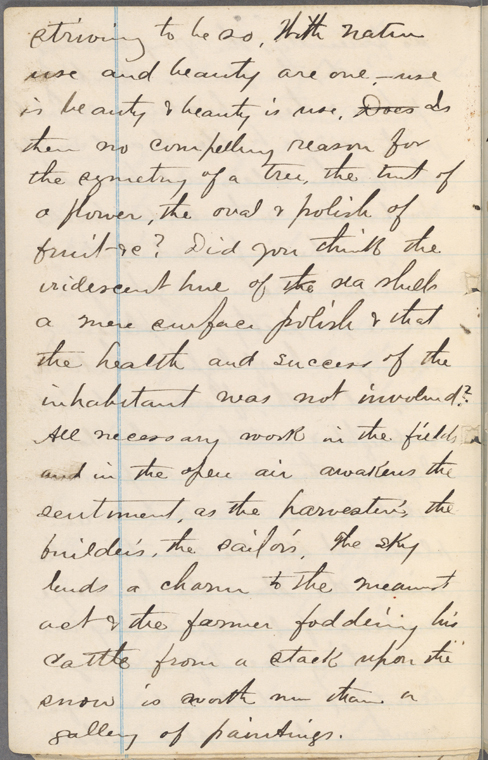 striving to be so. With nature
use and beauty are one – use
is beauty & beauty is use. Does Is
there no compelling reason for
the symetry of a tree, the tint of
a flower, the oval & polish of
fruit &c? Did you think the
iridescent hue of the sea shells
a mere surface polish & that
the health and success of the
inhabitant was not involved?
All necessary work in the fields
and in the open air awakens the
sentiment, as the harvester's, the
builder's, the sailor's. The sky
lends a charm to the meanest
act & the farmer foddering his
cattle from a stack upon the
snow is worth more than a
gallery of paintings.